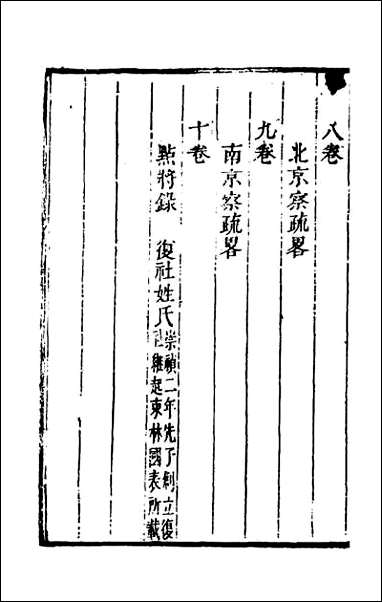 八卷
北京察疏畧
九卷
南京察疏畧
十卷
點將錄　復社姓氏
崇禎二年先了創立復
社繼起東林國表所載